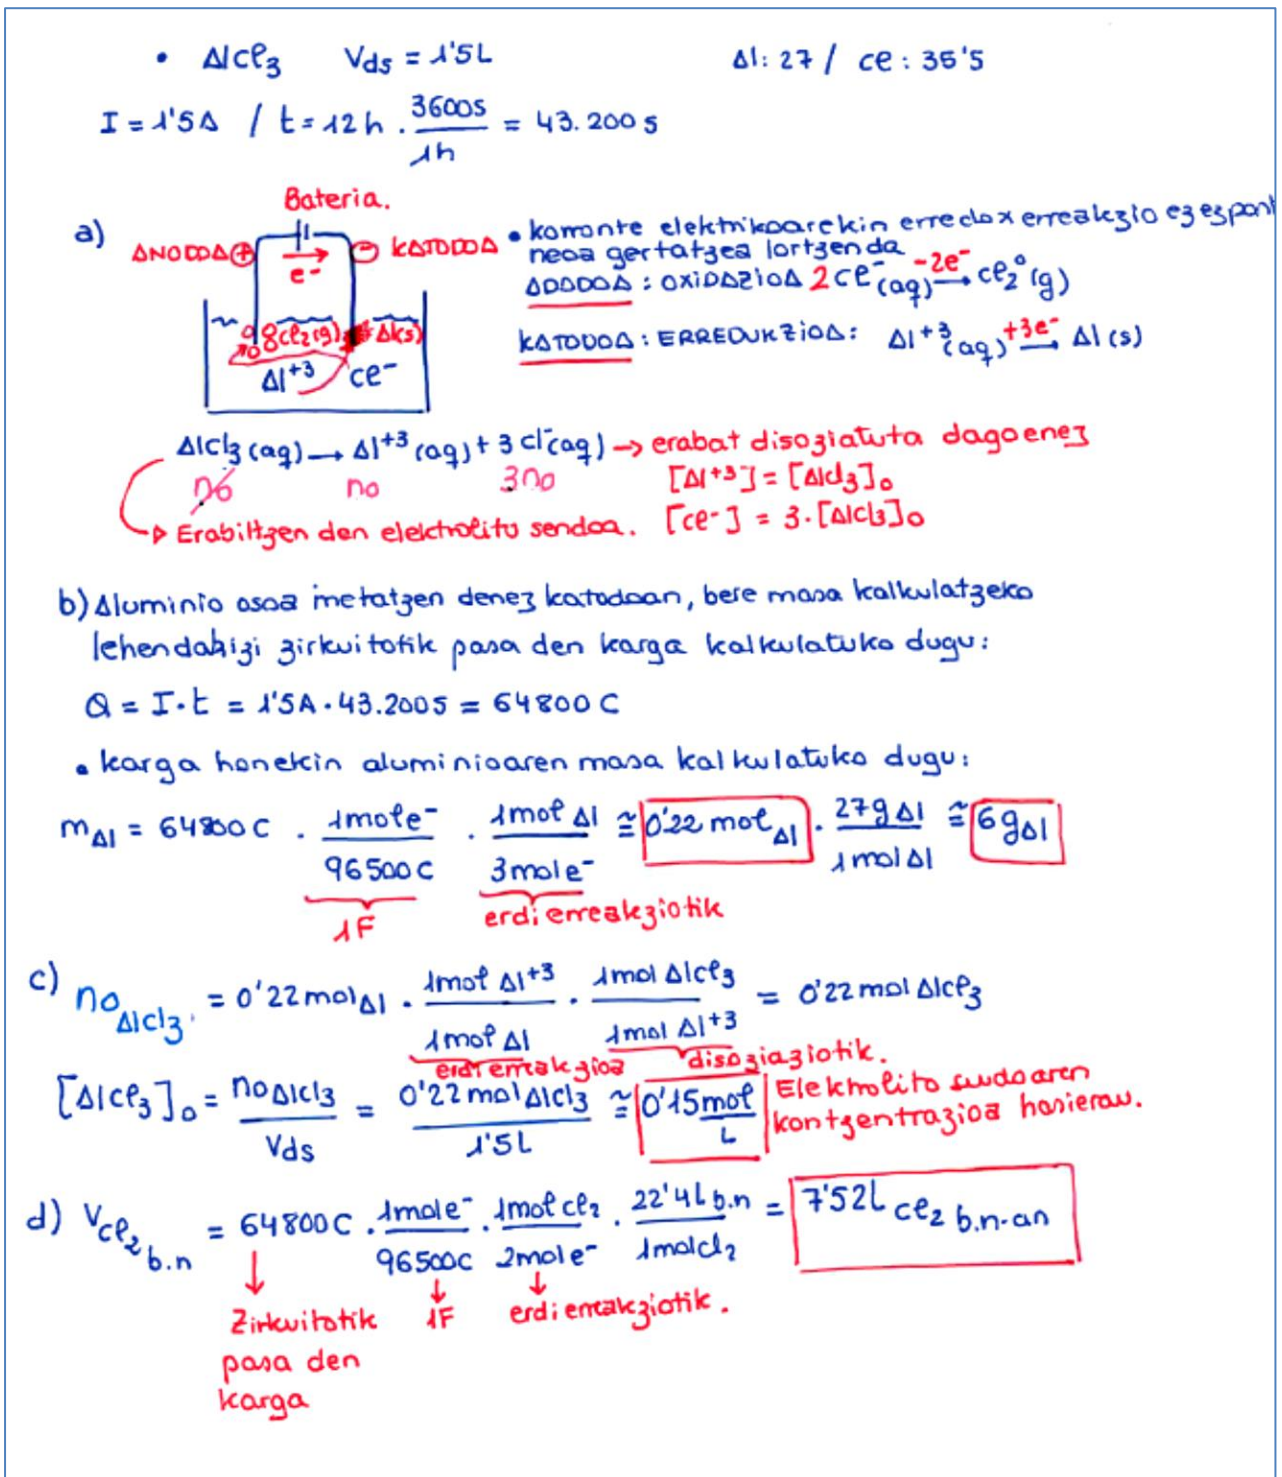 • AlCl₃ Vds = 1'5L Al: 27 / Cl: 35'5
I = 1'5A / t = 12h · 3600s / 1h = 43.200 s
Bateria.
a) ANODOA ⊕ e⁻ ⊖ KATODOA
Cl₂(g) Al(s)
Al⁺³ Cl⁻
• korronte elektrikoarekin erredox erreakzio ez espont
neoa gertatzea lortzen da
ANODOA : OXIDAZIOA 2Cl⁻(aq) -2e⁻→ Cl₂⁰(g)
KATODOA : ERREDUKZIOA: Al⁺³(aq) +3e⁻→ Al(s)
AlCl₃(aq) → Al⁺³(aq) + 3Cl⁻(aq) → erabat disoziatuta dagoenez
n₀ n₀ 3n₀ [Al⁺³] = [AlCl₃]₀
→ Erabiltzen den elektrolito sendoa. [Cl⁻] = 3·[AlCl₃]₀
b) Aluminio osoa metatzen denez katodoan, bere masa kalkulatzeko
lehendabizi zirkuitotik pasa den karga kalkulatuko dugu:
Q = I·t = 1'5A·43.200s = 64800 C
• karga honekin aluminioaren masa kalkulatuko dugu:
m Al = 64800 C · 1mol e⁻ / 96500 C · 1mol Al / 3mol e⁻ ≅ 0'22 mol Al · 27g Al / 1mol Al ≅ 6g Al
1F erdierreakziotik
c) n₀ AlCl₃ = 0'22 mol Al · 1mol Al⁺³ / 1mol Al · 1mol AlCl₃ / 1mol Al⁺³ = 0'22 mol AlCl₃
erdierreakzioa disoziaziotik.
[AlCl₃]₀ = n₀ AlCl₃ / Vds = 0'22 mol AlCl₃ / 1'5L ≅ 0'15 mol / L Elektrolito sendoaren
kontzentrazioa hasieran.
d) V Cl₂ b.n = 64800 C · 1mol e⁻ / 96500 C · 1mol Cl₂ / 2mol e⁻ · 22'4L b.n / 1mol Cl₂ = 7'52L Cl₂ b.n-an
Zirkuitotik 1F erdierreakziotik.
pasa den
karga